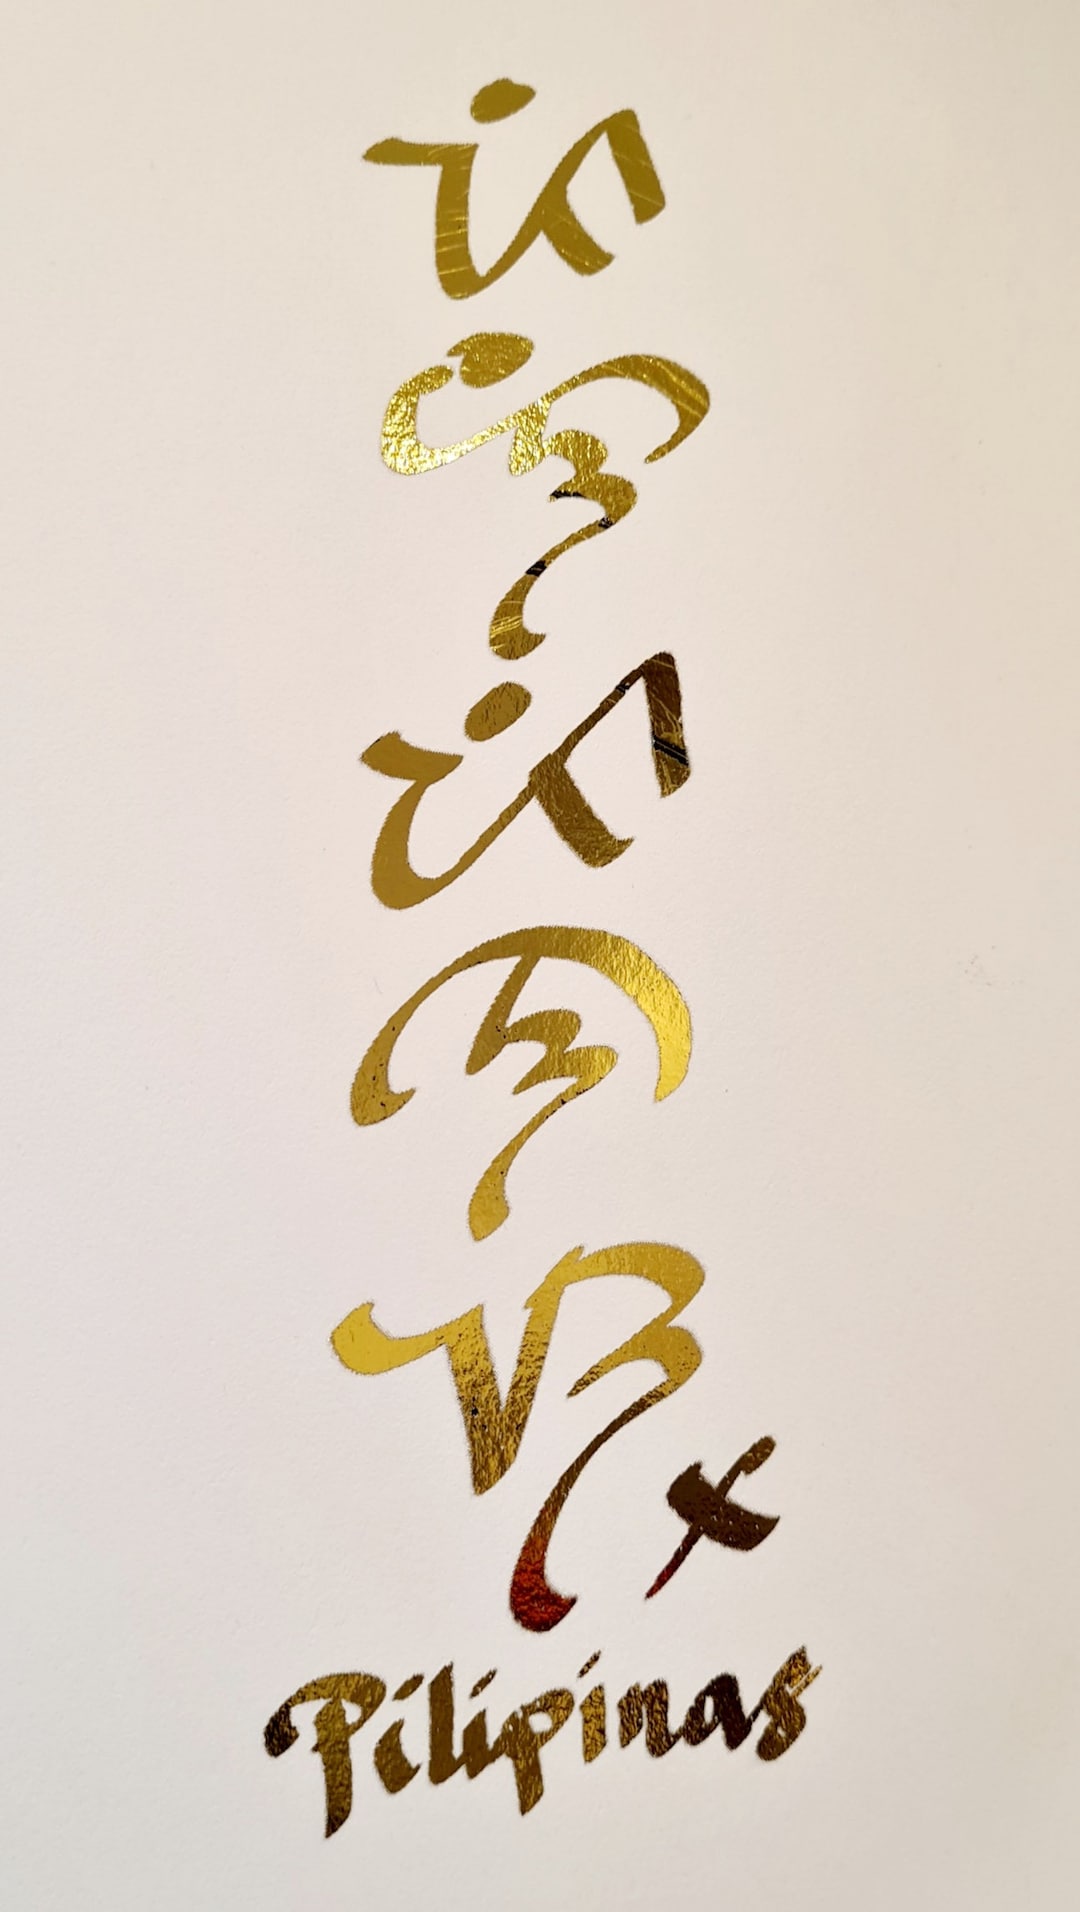 ᜉᜒᜎᜒᜉᜒᜈᜐ᜔
Pilipinas